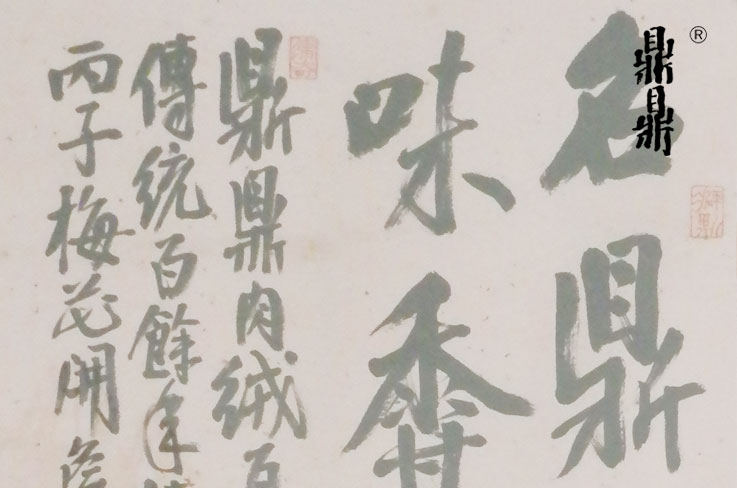 鼎鼎®
名鼎
味香
鼎鼎肉绒百
傳統百餘年
丙子梅花開